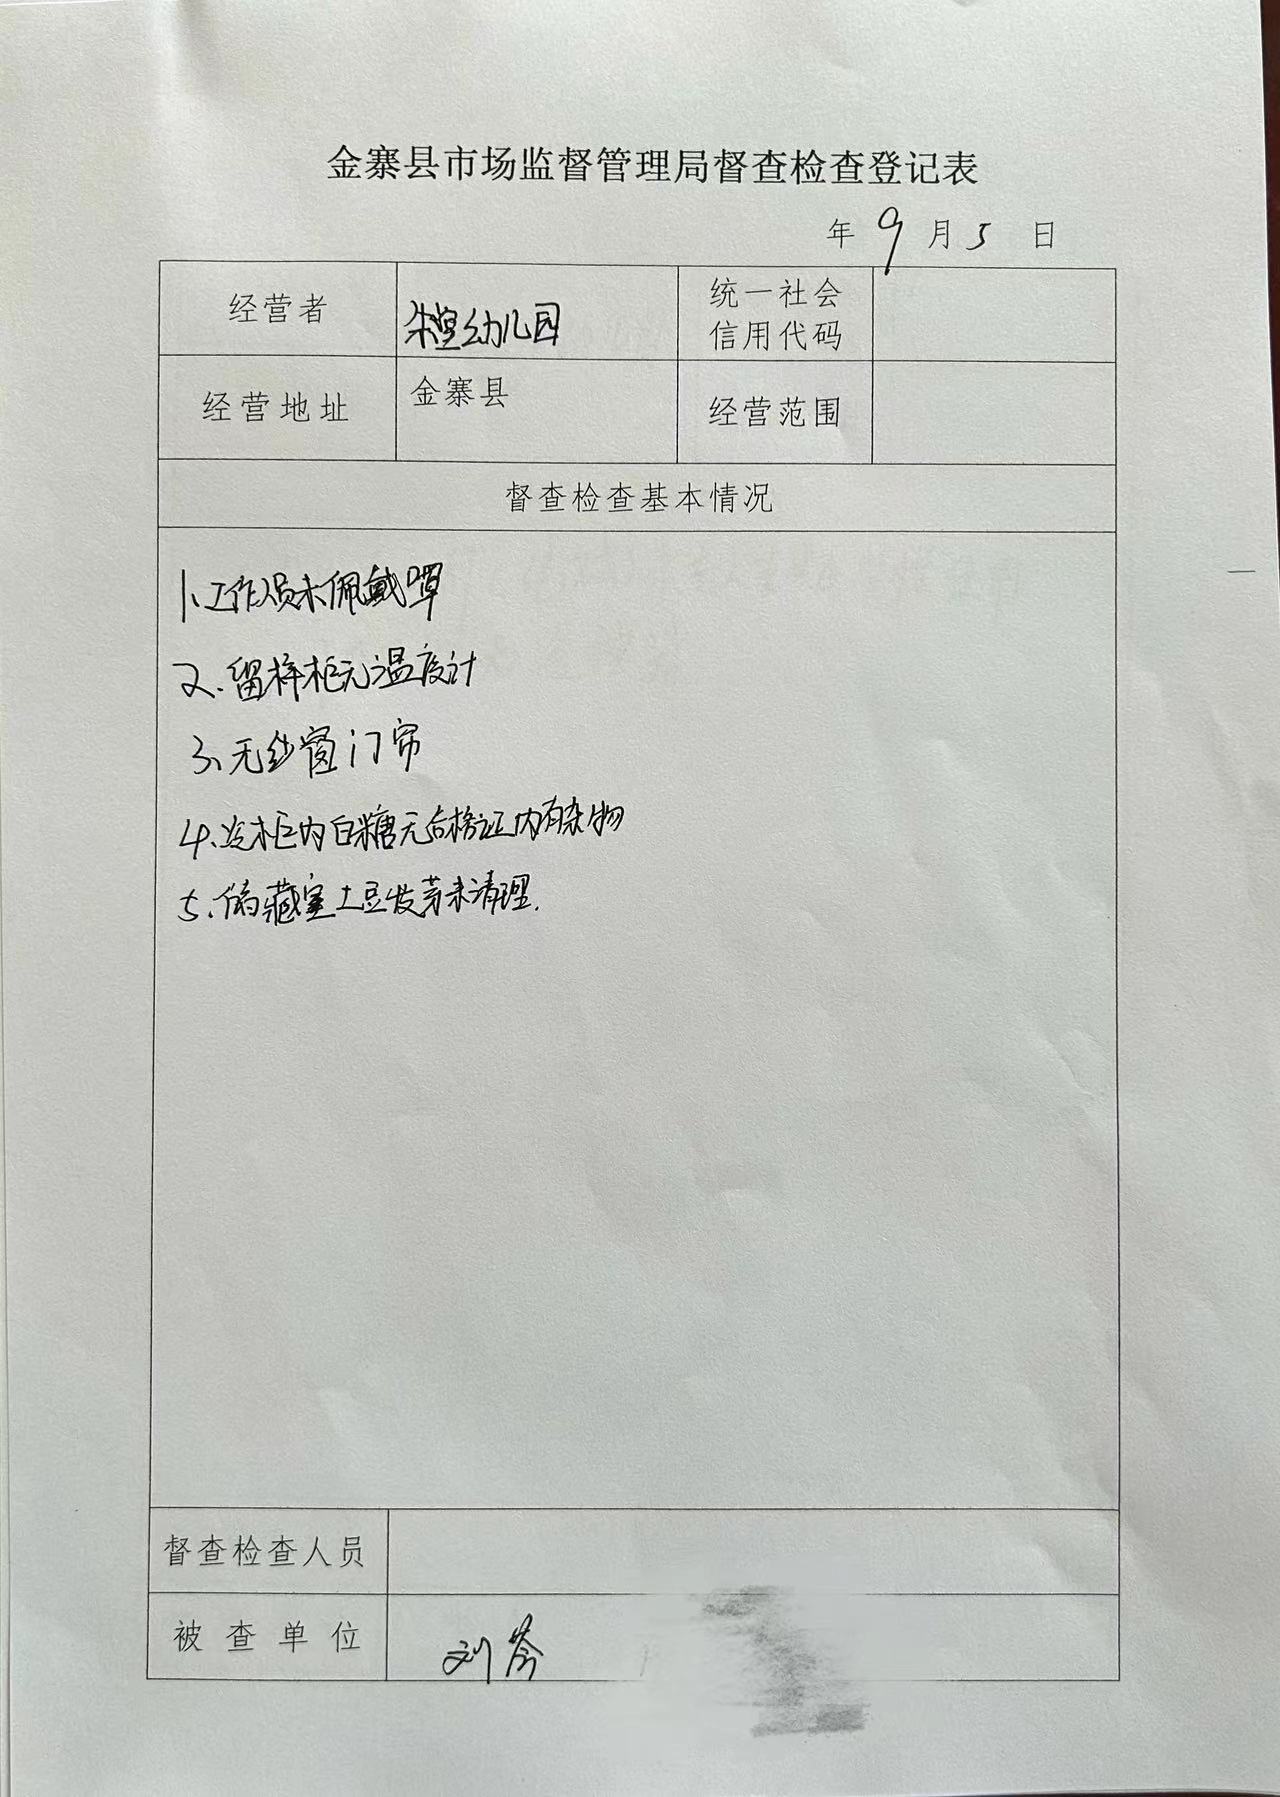 金寨县市场监督管理局督查检查登记表
年 9 月 5 日
经营者 朱堂幼儿园 统一社会信用代码
经营地址 金寨县 经营范围
督查检查基本情况
1、工作人员未佩戴口罩
2、留样柜无温度计
3、无纱窗门帘
4、冷柜内白糖无合格证内有杂物
5、储藏室土豆发芽未清理.
督查检查人员
被查单位 刘芩